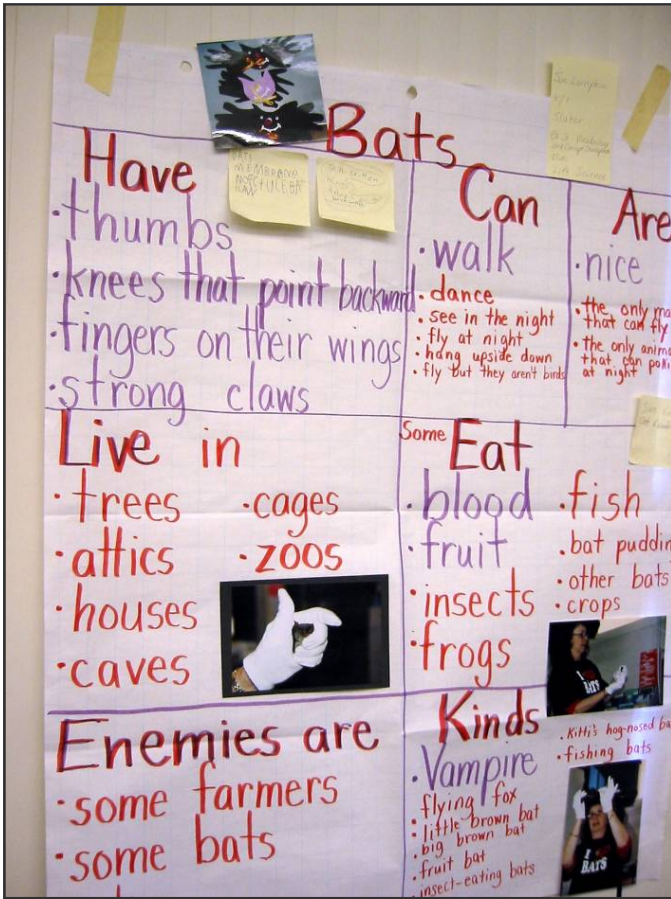 Bats
Have
·thumbs
·knees that point backward
·fingers on their wings
·strong claws
MEMBRANE
NOSE
CLAW
Can
·walk
·dance
·see in the night
·fly at night
·hang upside down
·fly but they aren't birds
Are
·nice
·the only
that can fly
·the only
that can
at night
Live in
·trees
·attics
·houses
·caves
·cages
·zoos
Some Eat
·blood
·fruit
·insects
·frogs
·fish
·bat
·other bats
·crops
BATS
Enemies are
·some farmers
·some bats
Kinds
·Vampire
·flying fox
·little brown bat
·big brown bat
·fruit bat
·insect-eating bats
·Kitti's hog-nosed
·fishing bats
I
BATS